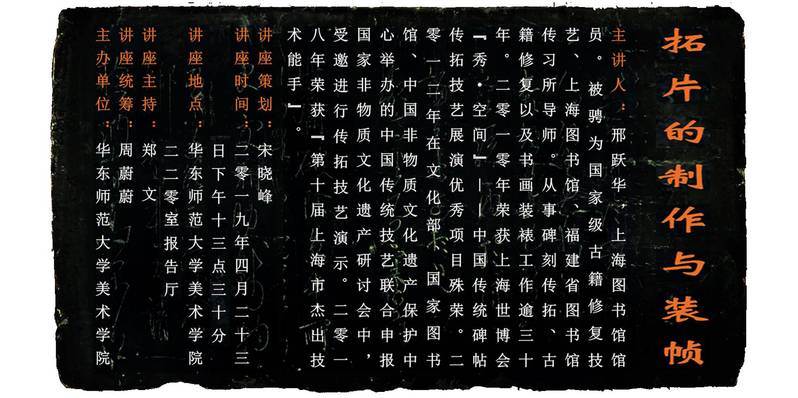 拓片的制作与装帧
主讲人：邢跃华，上海图书馆馆
员。被聘为国家级古籍修复技
艺、上海图书馆、福建省图书馆
传习所导师。从事碑刻传拓、古
籍修复以及书画装裱工作逾三十
年。二零一零年荣获上海世博会
『秀·空间』——中国传统碑帖
传拓技艺展演优秀项目殊荣。二
零一二年在文化部、国家图书
馆、中国非物质文化遗产保护中
心举办的中国传统技艺联合申报
国家非物质文化遗产研讨会中，
受邀进行传拓技艺演示。二零一
八年荣获『第十届上海市杰出技
术能手』。
讲座策划：宋晓峰
讲座时间：二零一九年四月二十三
日下午十三点三十分
讲座地点：华东师范大学美术学院
二二零室报告厅
讲座主持：郑文
讲座统筹：周蔚蔚
主办单位：华东师范大学美术学院